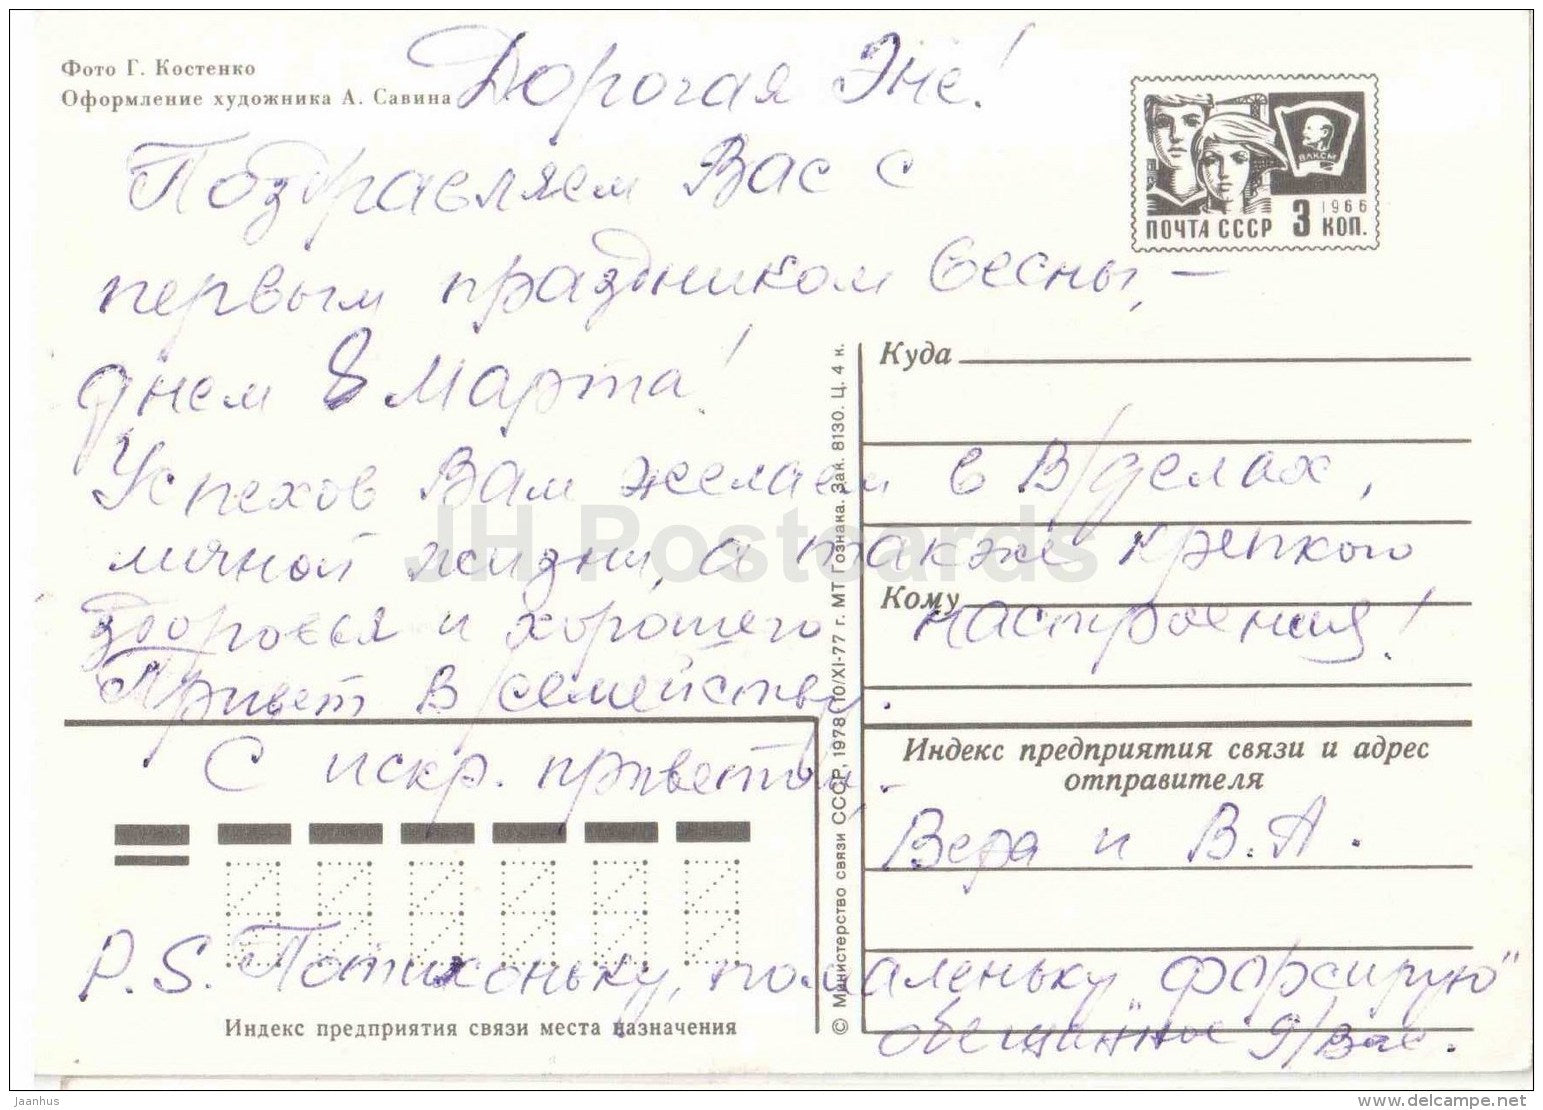 Фото Г. Костенко
Оформление художника А. Савина
Дорогая Эне!
Поздравляем Вас с
первым праздником весны, –
днем 8 Марта!
Успехов Вам желаем в В/делах,
личной жизни, а также крепкого
здоровья и хорошего настроения!
Привет В/семейству.
С искр. приветом –
Вера и В.А.
P.S. Потихоньку, помаленьку „форсирую"
обещанное д/Вас.
ВЛКСМ
1966
ПОЧТА СССР 3 КОП.
Куда
Кому
Индекс предприятия связи и адрес
отправителя
Индекс предприятия связи места назначения
© Министерство связи СССР, 1978 (10/XI-77 г. МТ Гознака. Зак. 8130. Ц. 4 к.
JH Postcards
Jaanhus
delcampe.net